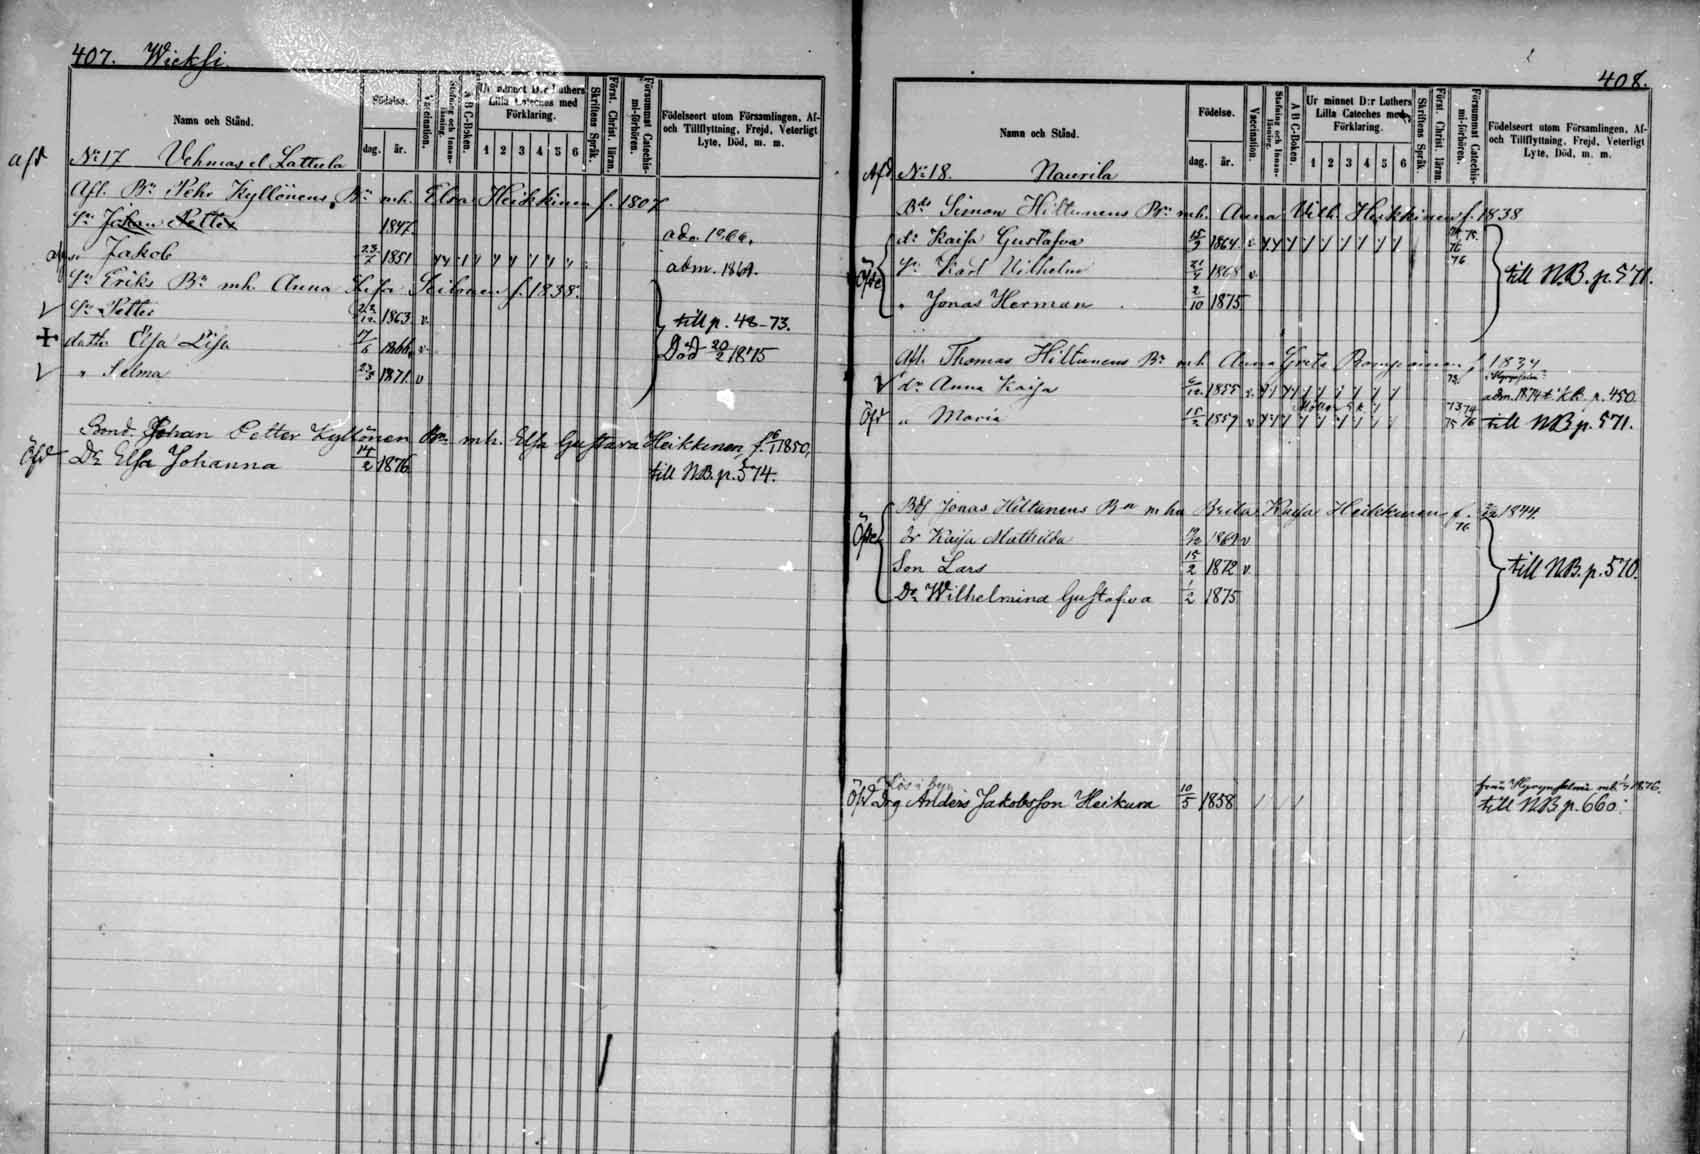 407. Wieksi
Namn och Stånd.
Födelse.
dag. år.
Vaccination.
Stafning och Innan-läsning.
A B C-Boken.
Ur minnet D:r Luthers Lilla Cateches med Förklaring.
1 2 3 4 5 6
Skriftens Språk.
Först. Christ. läran.
Försummat Catechis-mi-förhören.
Födelseort utom Församlingen, Af- och Tillflyttning, Frejd, Veterligt Lyte, Död, m. m.
afd No 17 Vehmas el Lattula
Afl. Bn Pehr Kyllönens Bn m.h. Elsa Heikkinen f. 1807
Sn Johan Petter 1847
" Jakob 23/7 1851 adm. 1869.
Sn Eriks Bn m.h. Anna Lisa Seilonen f. 1838.
Sn Petter 1863 v. till p. 48-73.
dottr Elsa Lisa 17/6 1866 v. Död 20/2 1875
" Selma 1871 v
Bond. Johan Petter Kyllönen Bn m.h. Elsa Gustava Heikkinen, f. 1850,
Öfd Dr Elsa Johanna 14/2 1876 till N.B. p. 574.
408.
Namn och Stånd.
Födelse.
dag. år.
Vaccination.
Stafning och Innan-läsning.
A B C-Boken.
Ur minnet D:r Luthers Lilla Cateches med Förklaring.
1 2 3 4 5 6
Skriftens Språk.
Först. Christ. läran.
Försummat Catechis-mi-förhören.
Födelseort utom Församlingen, Af- och Tillflyttning, Frejd, Veterligt Lyte, Död, m. m.
Afd No 18. Naurila
Simon Hiltunens Bn m.h. Anna Vilh. Heikkinen f. 1838
dr Kaisa Gustafva 15/9 1864 v
Sn Karl Vilhelm 1868 v. till N.B. p. 571.
" Jonas Herman 2/10 1875
Afl. Thomas Hiltunens Bn m.h. Anna Greta Romppainen f. 1834
dr Anna Kaisa 1855 v. 73. adm. 1874 t. K.B. p. 450
Öfd " Maria 15/2 1859 v 73 74 75 76 till N.B. p. 571.
Jonas Hiltunens Bn m hu Brita Kaisa Heikkinen f. 1844.
dr Kaija Mathilda 1869 v
Son Lars 15/2 1872 v. till N.B. p. 570.
Dr Wilhelmina Gustafva 1/2 1875
Lös i byn
Öfd Drg Anders Jakobsson Heikura 10/5 1858 från Hyrynsalmi 1876.
till N.B. p. 660.